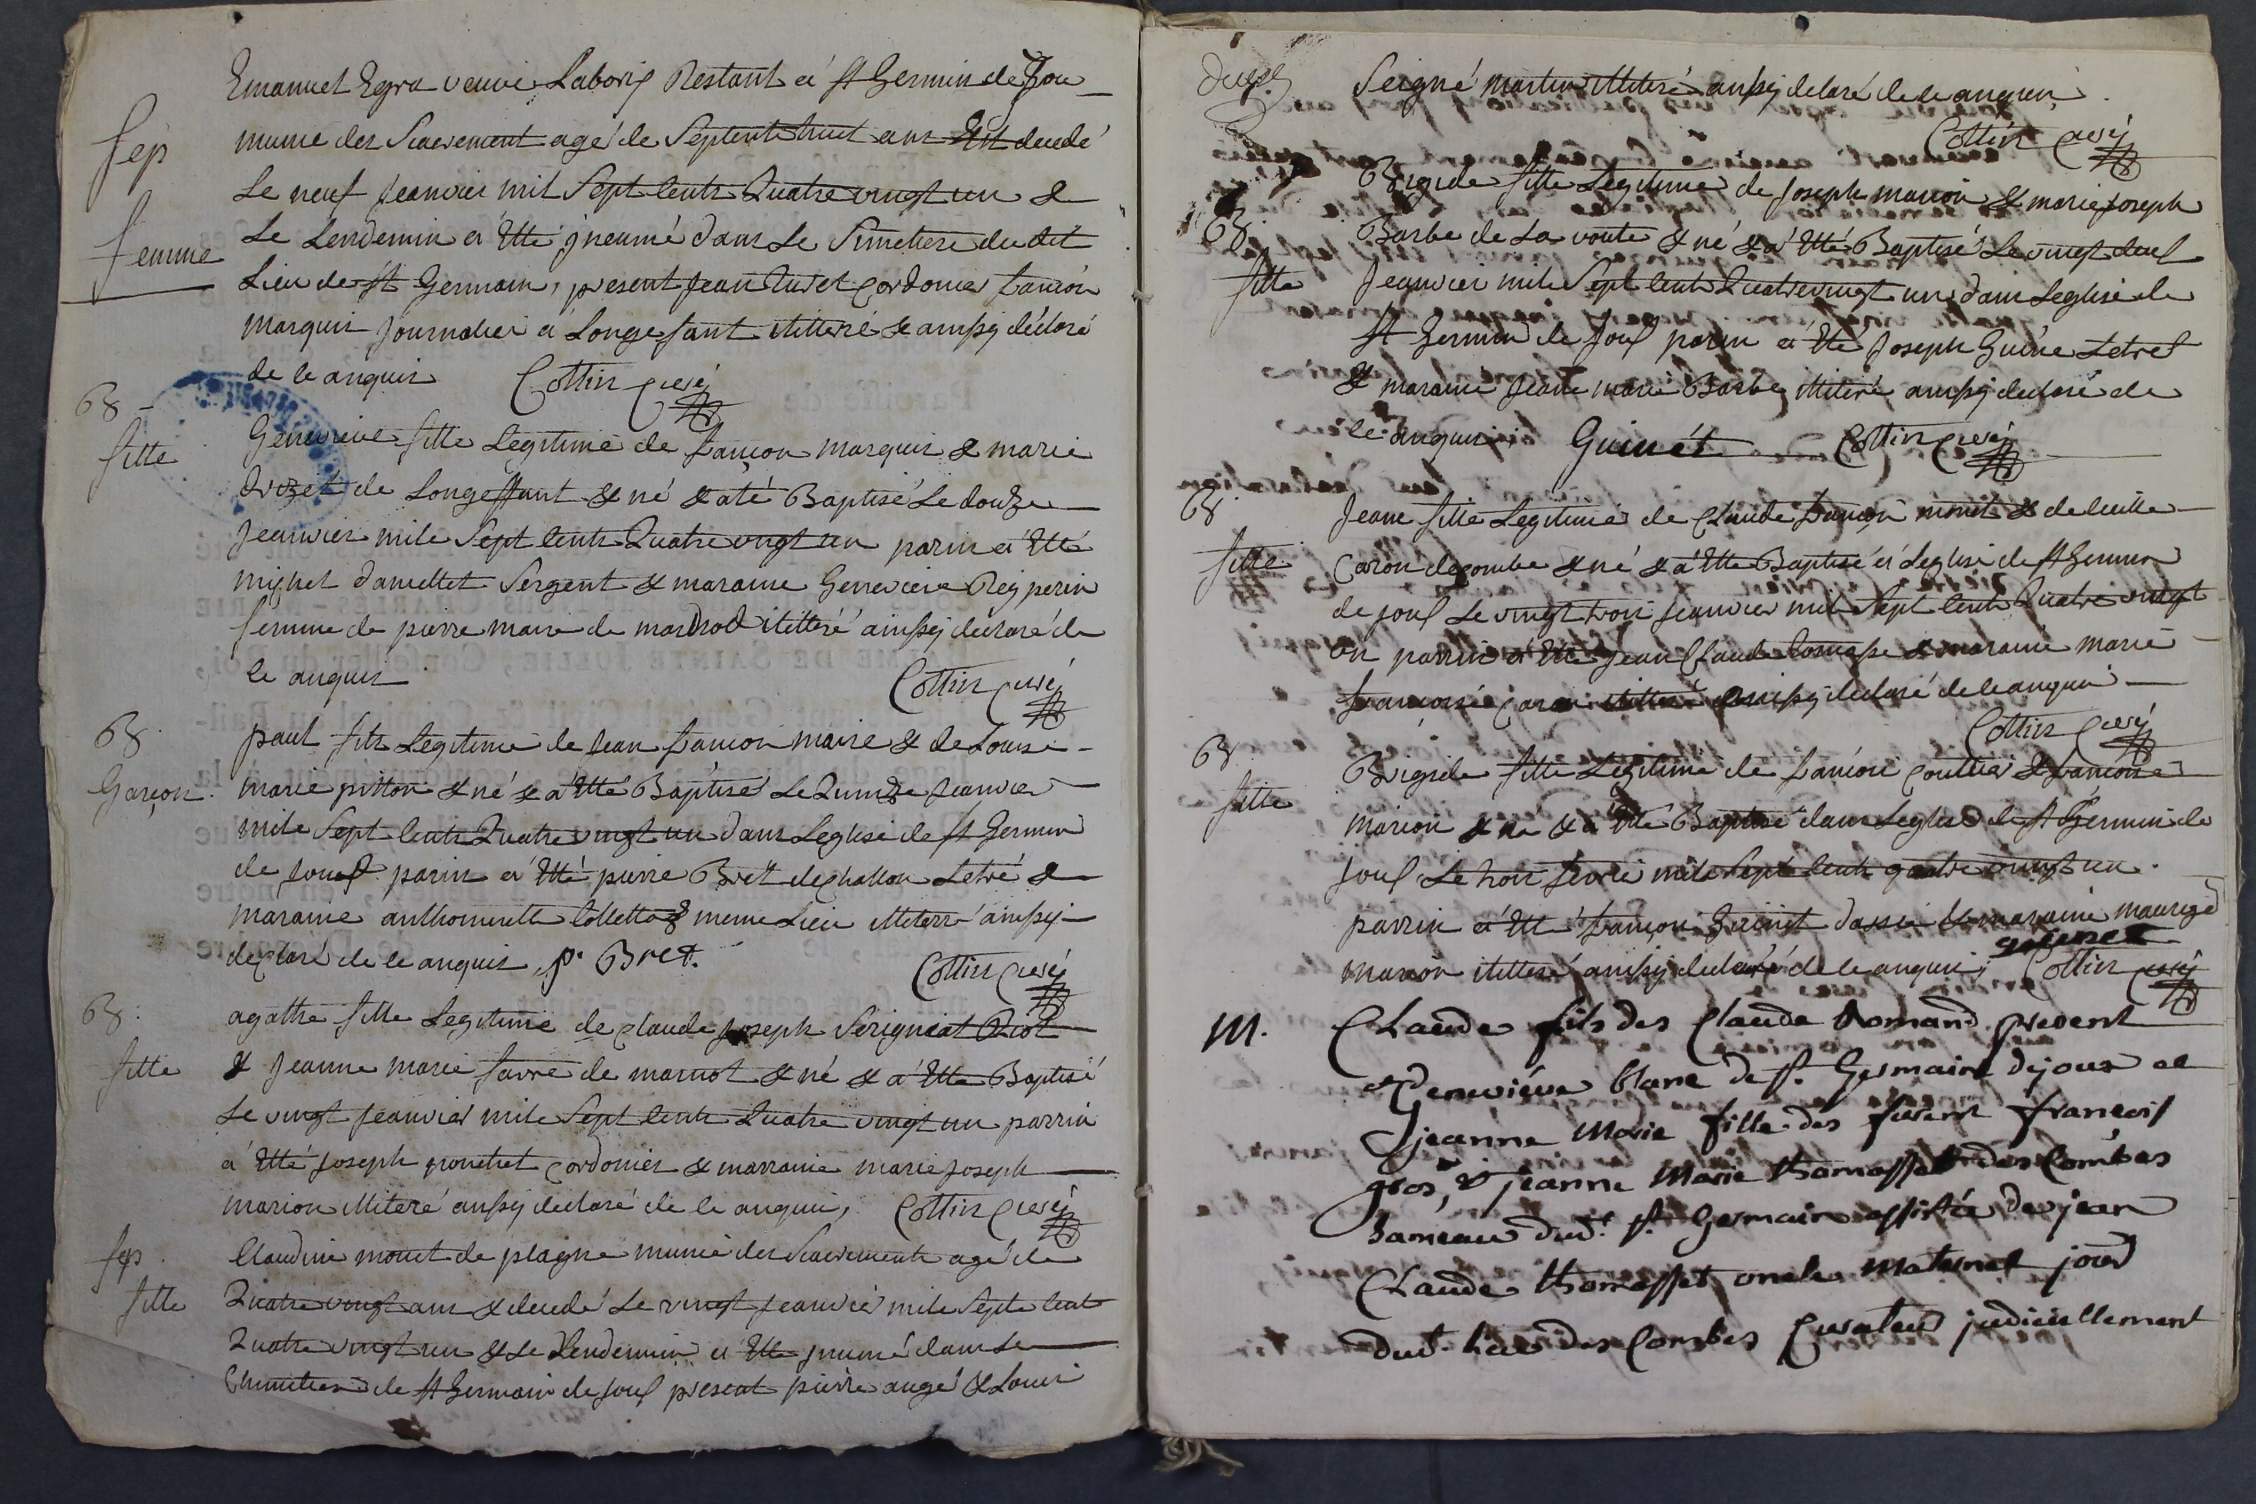 Emanuel Egra veuve Laboris Restant a St Germin de Jou
Sep munie des Sacrement agé de Septente huit ans Est decedé
Le neuf Jeanvier mil Sept Cents Quatre vingt un &
femme Le Lendemin a Etté jneumé dans Le Simetiere du dit
Lieu de St Germain, present Jean Curet Cordonier francon
marquis Journalier a Longe fant illitteré & ainssy déclaré
de le anquis Cottin Curé
68
fille Genevieve fille Legitime de francon marquis & marie
de Longeffant & né & a té Baptisé Le douze
Jeanvier mile Sept Cents Quatre vingt un parin a Etté
michel damettet Sergent & maraine Genevieve Reyperin
femme de pierre maire de mardrod illitteré ainssy declaré de
le anquis Cottin Curé
68
Garçon paul fils Legitime de Jean francon maire & de Louise
marie pitton & né & a Etté Baptisé Le Quinze Jeanvier
mile Sept Cents Quatre vingt un dans Leglise de St Germin
de Jouf parin a Etté pierre Bret de challon Letré &
maraine anthoinette Collettaz meme Lieu illiterré ainssy
declaré de le anquis p. Bret. Cottin Curé
68.
agathe fille Legitime de Claude Joseph Serignat
fille & Jeanne marie favre de marnot & né & a Etté Baptisé
Le vingt Jeanvier mile Sept Cents Quatre vingt un parrin
a Etté Joseph ponchet Cordonier & marraine marie Joseph
marion illiteré ainssy declaré de le anquis, Cottin Curé
Sep. Claudine monet de plagne munie des Sacrements agé de
fille Quatre vingt ans & decedé Le vingt Jeanvier mile Septe Cent
Quatre vingt un & Le Lendemin a Etté jnumé dans Le
Chimitiere de St Germain de Jouf present pierre augé & Louis
Seigné martin illiteré ainssy declaré de le anquis
Cottin Curé
Brigide fille Legitime de Joseph marion & marie Joseph
68. Barbe de La voute & né & a Etté Baptisé Le vingt deuf
fille Jeanvier mile Sept Cents Quatre vingt un dans Leglise de
St Germin de Jouf parin a Etté Joseph Guine Letret
& maraine Jeane marie Barbe illiteré ainssy declaré de
le anquis Guinet Cottin Curé
68 Jeane fille Legitime de Claude francon monet & de
fille Caron de combe & né & a Etté Baptisé a Leglise de St Germin
de Jouf Le vingt troi Jeanvier mile Sept Cents Quatre vingt
un parrin a Etté Jean Claude tomasse & maraine marie
francoise Caron illitteré ainssy declaré de le anquis
Cottin Curé
68
Brigide fille Legitime de francon & francoise
fille marion & né & a Etté Baptisé dans Leglise de St Germin de
Jouf Le troi fevrie mile Sept Cents quatre vingt un.
parrin a Etté francon Guinet & maraine
Guinet
marion illitteré ainssy declaré de le anquis, Cottin Curé
M. Claude fils des Claude Romand present
et Genevieve blanc de St. Germain dejoux et
jeanne Marie fille des furent francois
gros, & jeanne Marie thomasset des Combes
hameau dud.t St. Germain assistée de jean
Claude thomasset oncle maternel joud
dud.t lieu des Combes Curateur judiciellement